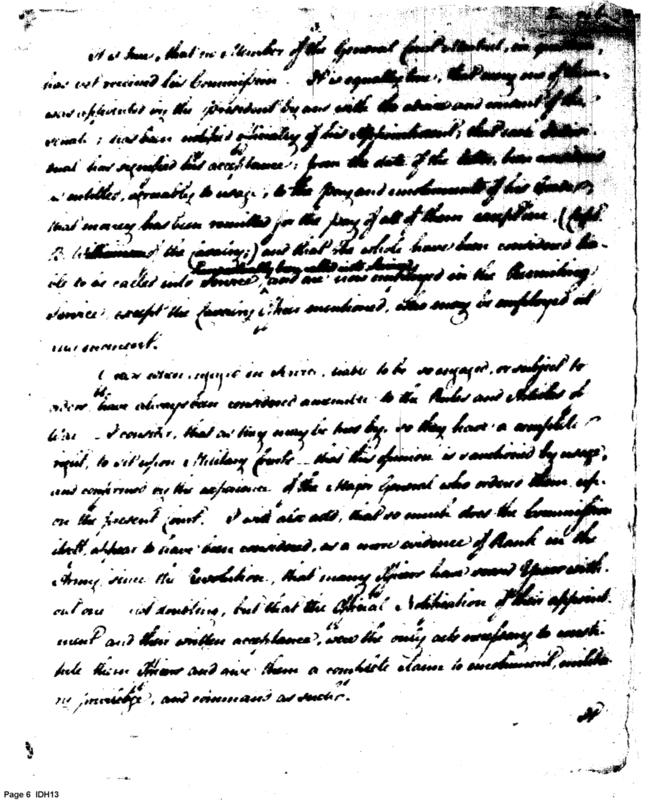 3.
It is true, that no Member of the General Court Martial, in question,
has yet received his Commission. It is equally true, that every one of them
was appointed by the President by and with the advice and consent of the
Senate; has been notified officially of his Appointment; that each Indivi-
dual has signified his acceptance; from the date of the letter, been considered
as entitled, agreeably to usage, to the pay and emoluments of his Grade;
that money has been remitted for the pay of all of them excepting (Capt.
Williamson the Cavalry;) and that the whole have been considered lia-
ble to be called into Service, and are now employed in the Recruiting
have been called into Service
Service except the Cavalry Officer mentioned, who may be employed at
any moment.
engaged in Service, liable to be so engaged, or subject to
orders have always been considered amenable to the Rules and Articles of
War. I consider, that as they may be tried by, so they have a complete
right, to sit upon Military Courts - that this opinion is sanctioned by usage,
and confirmed by the experience of the Major General who ordered them up-
on the present Court. I will also add, that so much does the Commission
itself, appear to have been considered, as a mere evidence of Rank in the
Army, since the Revolution, that many Officers have served years with-
out one not doubting, but that the Official Notification of their appoint-
ment and their written acceptance, were the only acts necessary to consti-
tute them Officers and give them a complete claim to emolument, milita-
ry privilege, and command as such.
Page 6 IDH13